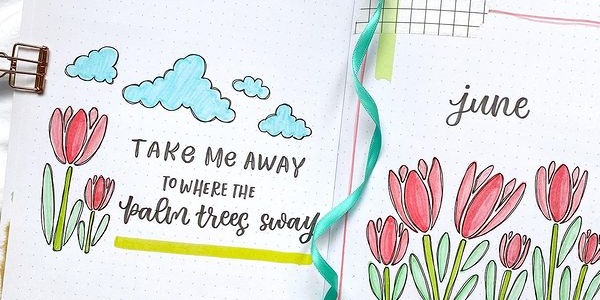 TAKE ME AWAY
TO WHERE THE
palm trees sway
june